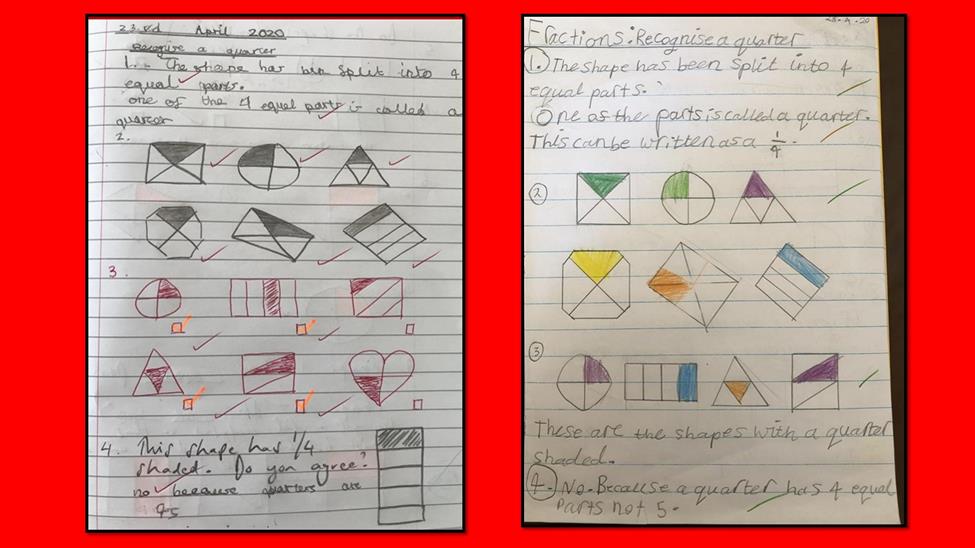 23rd April 2020
Recognise a quarter
1. - The shape has bin split into 4
equal parts.
one of the 4 equal parts is called a
quarter
2.
3.
4. This shape has 1/4
shaded. Do you agree?
no because quarters are
4
Fractions: Recognise a quarter
1. The shape has been split into 4
equal parts.
One as the parts is called a quarter.
This can be written as a 1/4.
2
3
These are the shapes with a quarter
shaded.
4. No. Because a quarter has 4 equal
Parts not 5.